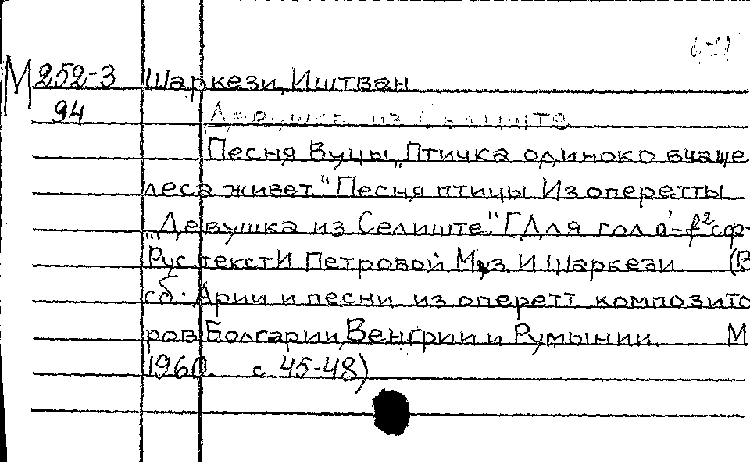 М 252-3 Шаркези, Иштван
94 Девушка из Селиште
Песня Вуцы „Птичка одиноко в чаще
леса живет." Песня птицы Из оперетты
„Девушка из Селиште." [Для гол с ф-
Рус текст И Петровой Муз. И Шаркези (В
сб. Арии и песни из оперетт композито
ров Болгарии, Венгрии и Румынии. М
1960. с. 45-48)